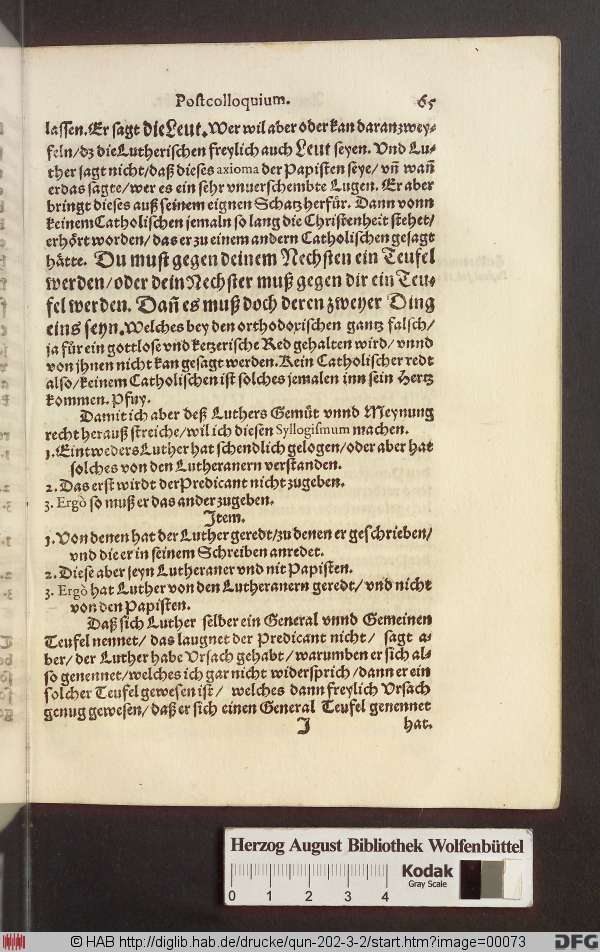 Postcolloquium. 65
lassen. Er sagt die Leut. Wer wil aber oder kan daran zwey-
feln/ dz die Lutherischen freylich auch Leut seyen. Vnd Lu-
ther sagt nicht/ daß dieses axioma der Papisten seye/ vñ wañ
er das sagte/ wer es ein sehr vnuerschembte Lugen. Er aber
bringt dieses auß seinem eignen Schatz herfür. Dann vonn
keinem Catholischen jemaln so lang die Christenheit stehet/
erhört worden/ das er zu einem andern Catholischen gesagt
hätte. Du must gegen deinem Nechsten ein Teufel
werden/ oder dein Nechster muß gegen dir ein Teu-
fel werden. Dañ es muß doch deren zweyer Ding
eins seyn. Welches bey den orthodoxischen gantz falsch/
ja für ein gottlose vnd ketzerische Red gehalten wird/ vnnd
von jhnen nicht kan gesagt werden. Kein Catholischer redt
also/ keinem Catholischen ist solches jemalen inn sein Hertz
kommen. Pfuy.
Damit ich aber deß Luthers Gemüt vnnd Meynung
recht herauß streiche/ wil ich diesen Syllogismum machen.
1. Eintweders Luther hat schendlich gelogen/ oder aber hat
solches von den Lutheranern verstanden.
2. Das erst wirdt der Predicant nicht zugeben.
3. Ergò so muß er das ander zugeben.
Jtem.
1. Von denen hat der Luther geredt/ zu denen er geschrieben/
vnd die er in seinem Schreiben anredet.
2. Diese aber seyn Lutheraner vnd nit Papisten.
3. Ergò hat Luther von den Lutheranern geredt/ vnd nicht
von den Papisten.
Daß sich Luther selber ein General vnnd Gemeinen
Teufel nennet/ das laugnet der Predicant nicht/ sagt a-
ber/ der Luther habe Vrsach gehabt/ warumben er sich al-
so genennet/ welches ich gar nicht widersprich/ dann er ein
solcher Teufel gewesen ist/ welches dann freylich Vrsach
genug gewesen/ daß er sich einen General Teufel genennet
J hat.
Herzog August Bibliothek Wolfenbüttel
Kodak
Gray Scale
0 1 2 3 4
© HAB http://diglib.hab.de/drucke/qun-202-3-2/start.htm?image=00073
DFG